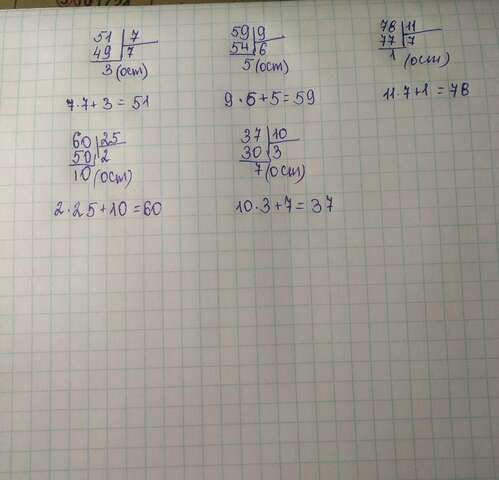 51 | 7
49 | 7
3 (ост)
7·7+3=51
59 | 9
54 | 6
5 (ост)
9·6+5=59
78 | 11
77 | 7
1 (ост)
11·7+1=78
60 | 25
50 | 2
10 (ост)
2·25+10=60
37 | 10
30 | 3
7 (ост)
10·3+7=37